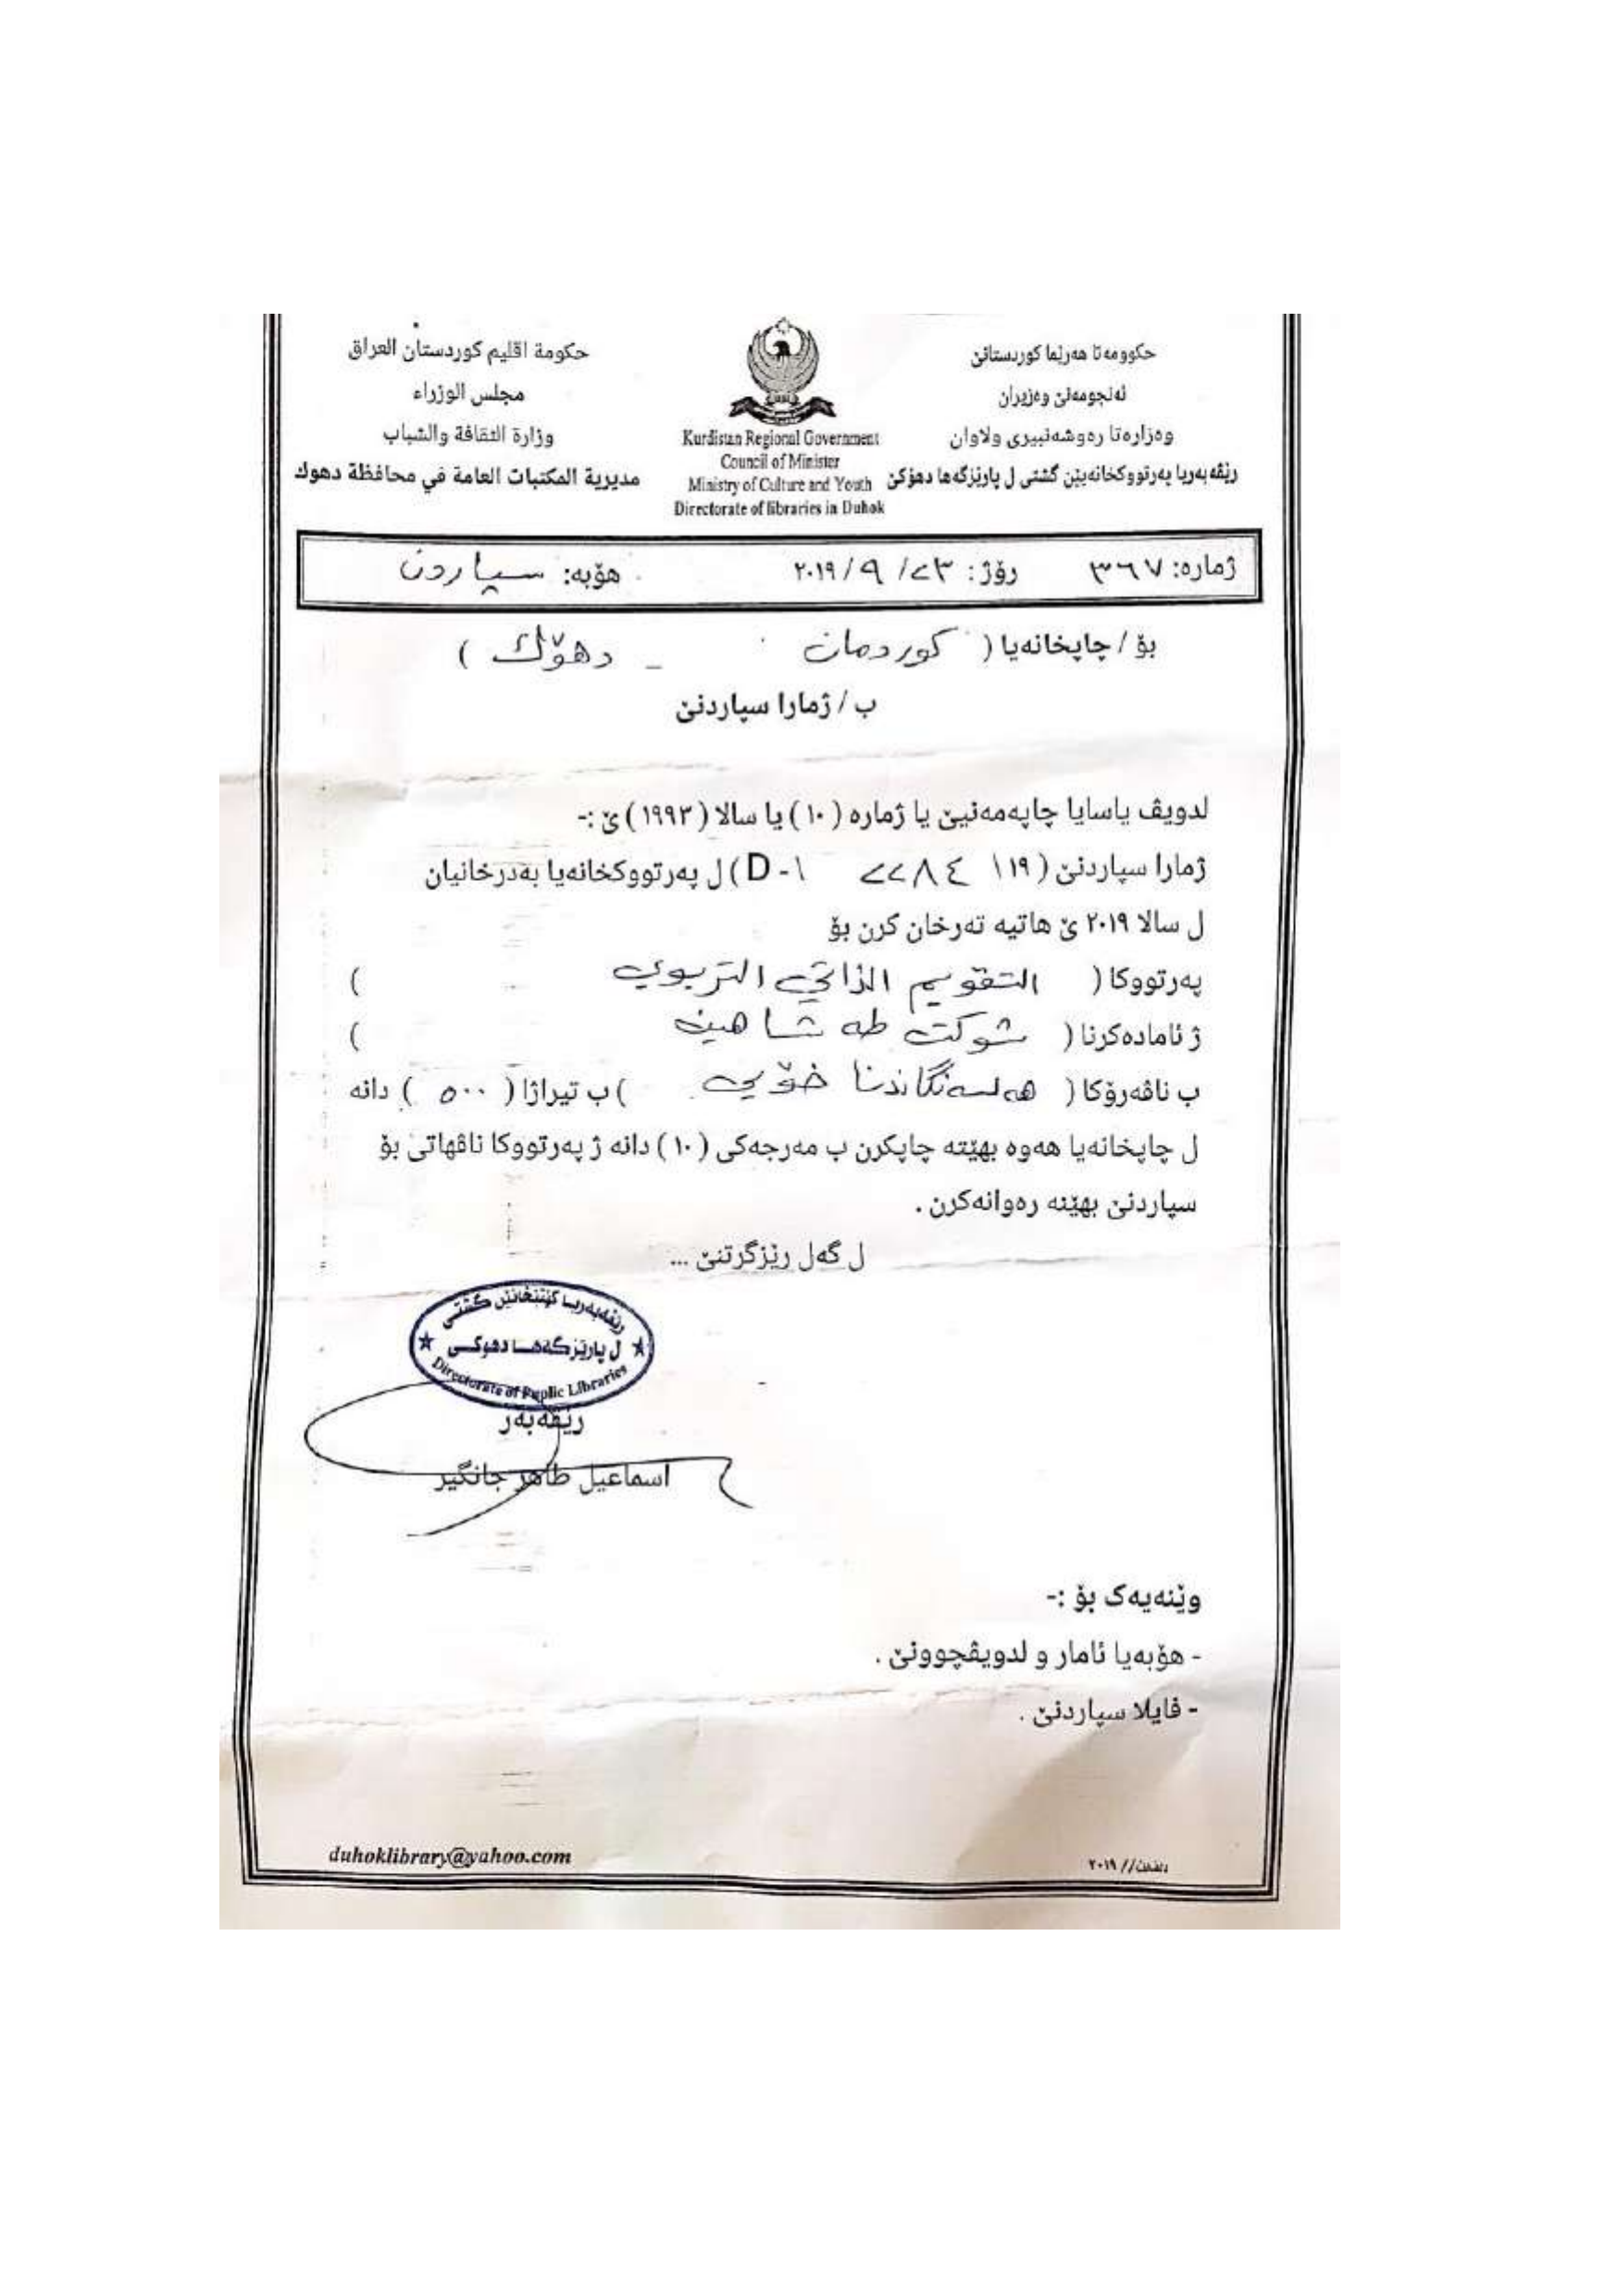 حکوومەتا هەرێما کوردستانێ
ئەنجومەنێ وەزیران
وەزارەتا رەوشەنبیری ولاوان
رێڤەبەریا پەرتووکخانەیێن گشتی ل پارێزگەها دهۆکێ
Kurdistan Regional Government
Council of Minister
Ministry of Culture and Youth
Directorate of libraries in Duhok
حكومة اقليم كوردستان العراق
مجلس الوزراء
وزارة الثقافة والشباب
مديرية المكتبات العامة في محافظة دهوك
ژمارە: ٣٦٧ رۆژ: ٢٣/ ٩ /٢٠١٩ هۆبە: سپاردن
بۆ / چاپخانەیا ( کوردمان - دهۆك )
ب / ژمارا سپاردنێ
لدویڤ یاسایا چاپەمەنیێ یا ژمارە ( ١٠ ) یا سالا ( ١٩٩٣ ) ێ :-
ژمارا سپاردنێ ( ١٩\ ٢٢٨٤ D-١ ) ل پەرتووکخانەیا بەدرخانیان
ل سالا ٢٠١٩ ێ هاتیە تەرخان کرن بۆ
پەرتووکا ( التقويم الذاتي التربوي )
ژ ئامادەکرنا ( شوكت طه شاهين )
ب ناڤەرۆکا ( هەلسەنگاندنا خۆیی ) ب تیراژا ( ٥٠٠ ) دانە
ل چاپخانەیا هەوە بهێتە چاپکرن ب مەرجەکی ( ١٠ ) دانە ژ پەرتووکا ناڤهاتی بۆ
سپاردنێ بهێنە رەوانەکرن .
ل گەل رێزگرتنێ ...
رێڤەبەریا کتێبخانێن گشتی
ل پارێزگەهـا دهوکـی
Directorate of Puplic Libraries
رێڤەبەر
اسماعیل طاهر جانگیر
وێنەیەک بۆ :-
- هۆبەیا ئامار و لدویڤچوونێ .
- فایلا سپاردنێ .
duhoklibrary@yahoo.com
٢٠١٩ //